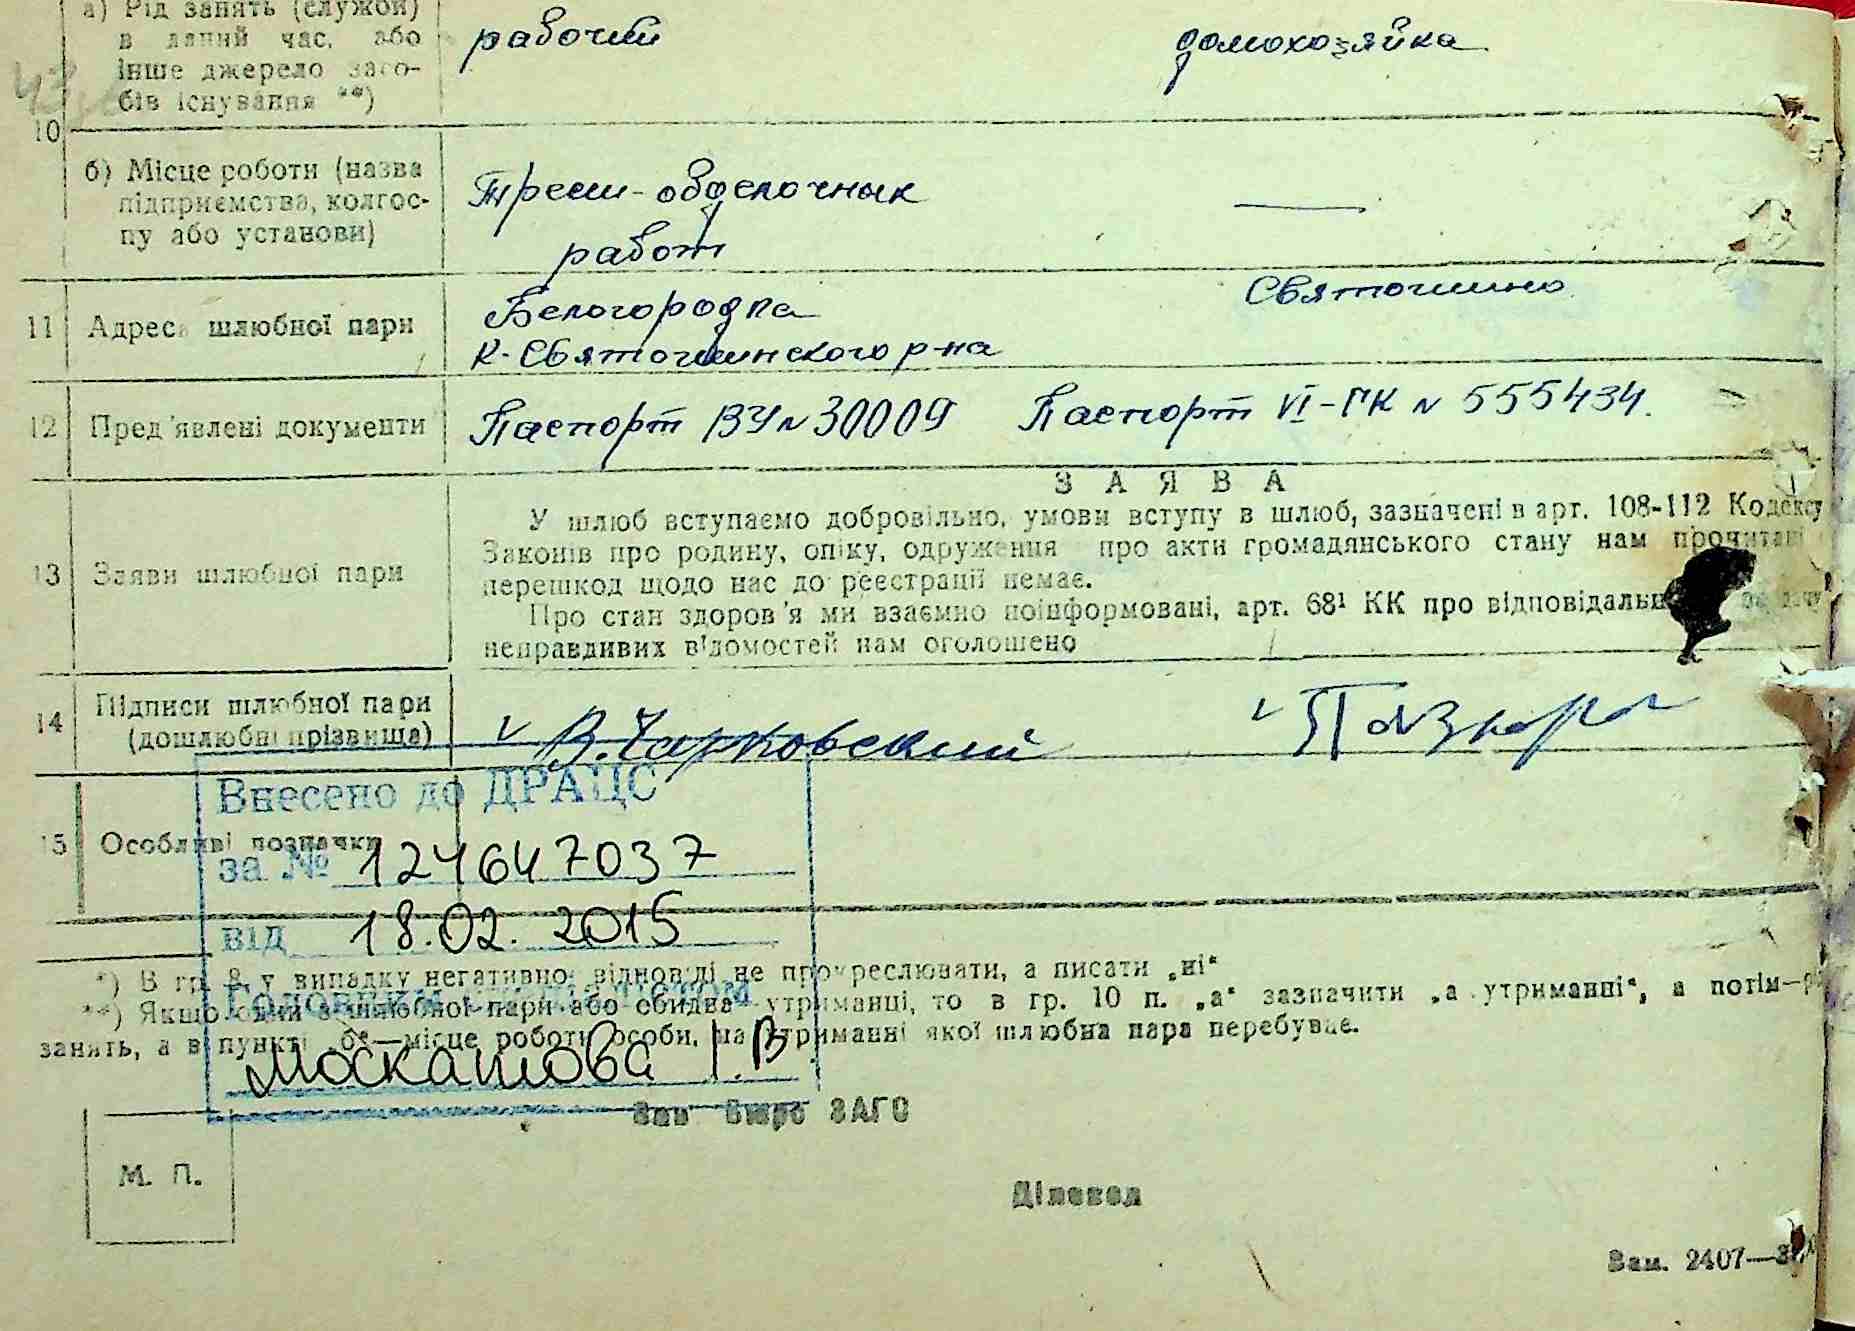 а) Рід занять (службой) в даний час, або інше джерело засобів існування **)
рабочий
домохозяйка
10
б) Місце роботи (назва підприємства, колгоспу або установи)
Трест-отделочных
работ
—
11
Адреса шлюбної пари
Белогородка
К-Святошинского р-на
Святошино
12
Пред'явлені документи
Паспорт ВУ № 30009
Паспорт VI-ГК № 555434.
ЗАЯВА
13
Заяви шлюбної пари
У шлюб вступаємо добровільно, умовы вступу в шлюб, зазначені в арт. 108-112 Кодексу
Законів про родину, опіку, одруження про акти громадянського стану нам прочитані
перешкод щодо нас до реєстрації немає.
Про стан здоров'я ми взаємно поінформовані, арт. 68¹ КК про відповідальн
неправдивих відомостей нам оголошено
14
Підписи шлюбної пари
(дошлюбні прізвища)
v В. Чарковский
v
Внесено до ДРАЦС
15
Особливі позначки
за № 124647037
від 18.02.2015
*) В гр. 8, у випадку негативної відповіді не прокреслювати, а писати „ні“
**) Якщо один з шлюбної пари або обидва утриманці, то в гр. 10 п. „а“ зазначити „а утриманні“, а потім—р
занять, а в пункті „б“—місце роботи особи, на утриманні якої шлюбна пара перебуває.
Москатова І.В
Зав Бюро ЗАГС
М. П.
Діловод
Зам. 2407—